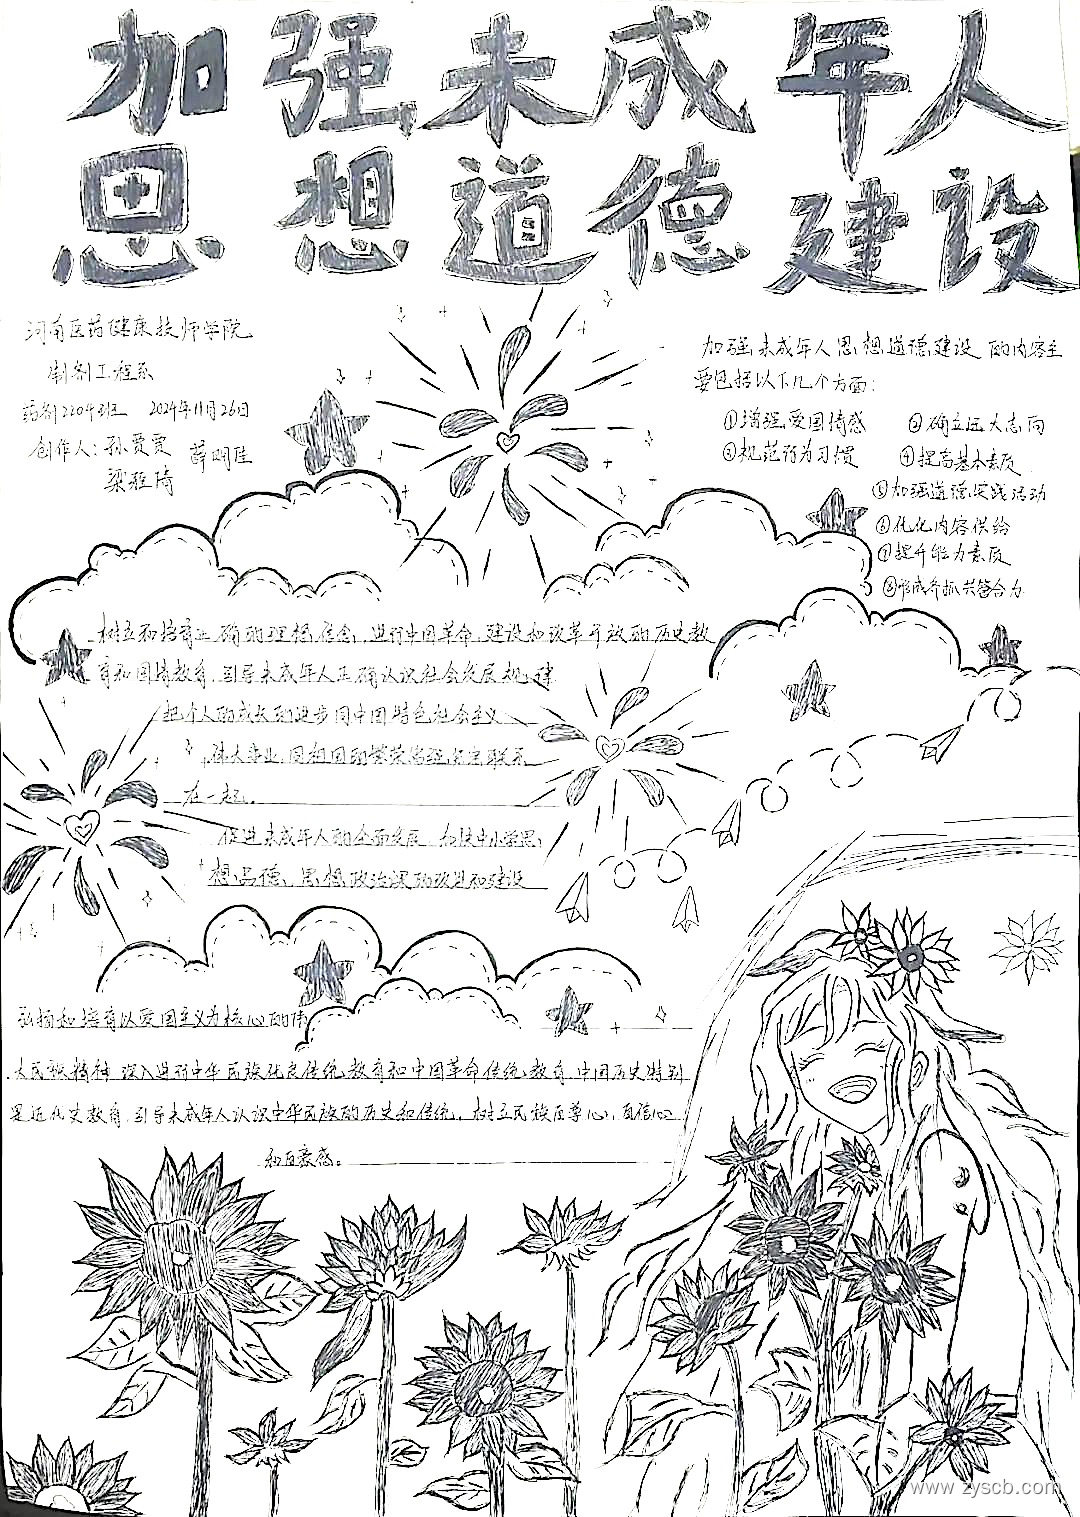 加强未成年人
思想道德建设
河南医药健康技师学院
制剂工程系
药剂2204班 2024年11月26日
创作人：孙贾贾 薛明佳
梁雅琦
加强未成年人思想道德建设的内容主
要包括以下几个方面：
①增强爱国情感 ②确立远大志向
③规范行为习惯 ④提高基本素质
⑤加强道德实践活动
⑥优化内容供给
⑦提升能力素质
⑧形成齐抓共管合力
树立和培育正确的理想信念，进行中国革命、建设和改革开放的历史教
育和国情教育，引导未成年人正确认识社会发展规律
把个人的成长和进步同中国特色社会主义
伟大事业，同祖国的繁荣富强紧密联系
在一起。
促进未成年人的全面发展 加快中小学思
想品德、思想政治课的改进和建设
弘扬和培育以爱国主义为核心的伟
大民族精神 深入进行中华民族优良传统教育和中国革命传统教育、中国历史特别
是近代史教育，引导未成年人认识中华民族的历史和传统，树立民族自尊心，自信心
和自豪感。
www.zyscb.com